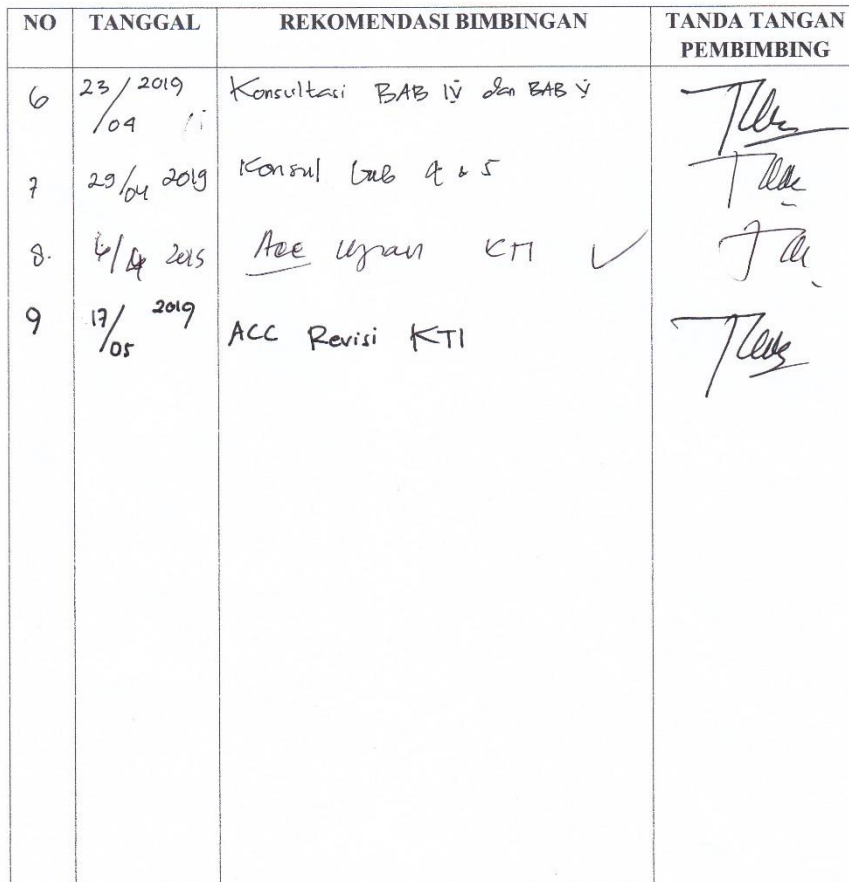 NO TANGGAL REKOMENDASI BIMBINGAN TANDA TANGAN PEMBIMBING
6 23/04 2019 Konsultasi BAB IV dan BAB V
7 29/04 2019 Konsul bab 4 & 5
8. Acc Ujian KTI
9 17/05 2019 ACC Revisi KTI